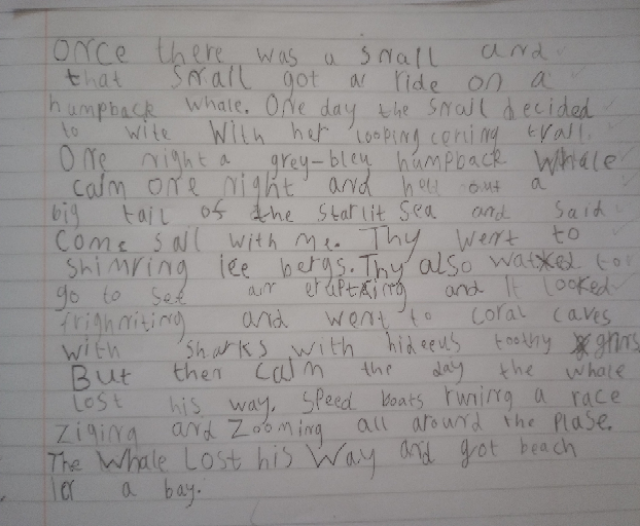 Once there was a snall and
that snall got a ride on a
humpback whale. One day the snall decided
to wite with her looping cerling trall.
One night a grey-bleu humpback whale
calm one night and held out a
big tail of the starlit sea and said
come sall with me. Thy went to
shimring ice bergs. Thy also watxed to
go to see an erupting and it looked
frighniting and went to coral caves
with sharks with hideeus toothy grins
But then calm the day the whale
lost his way. speed boats runing a race
ziging and zooming all around the plase.
The whale lost his way and got beach
in a bay.